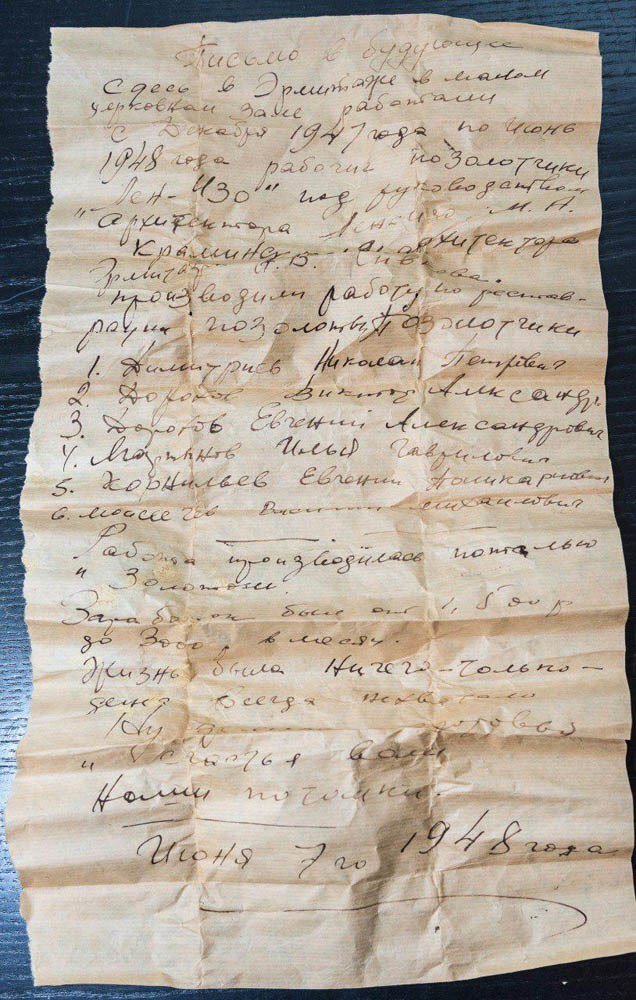 Письмо в будующие
Сдесь в Эрмитаже в малом
церковном зале работали
с Декабря 1947 года по июнь
1948 года рабочие позолотчики
"Лен-Изо" под руководством
архитектора М. Н.
архитектора
Эрмитажа
производили работу по рестав-
рации позолоты Позолотчики
1. Димитриев Николай Петрович
2. Дорохов Виктор Александр.
3. Дорохов Евгений Александрович
4. Мартянов Илья Гаврилович
5. Корнильев Евгений
6. Михаилович
Работа производилась
" Золотом.
Заработок был от 1,500 р
до 3000 в месяц.
Жизнь была Ничего-только-
денег всегда нехватало
Ну здоровья
" счастья вам
Наши потомки.
Июня 7го 1948 года